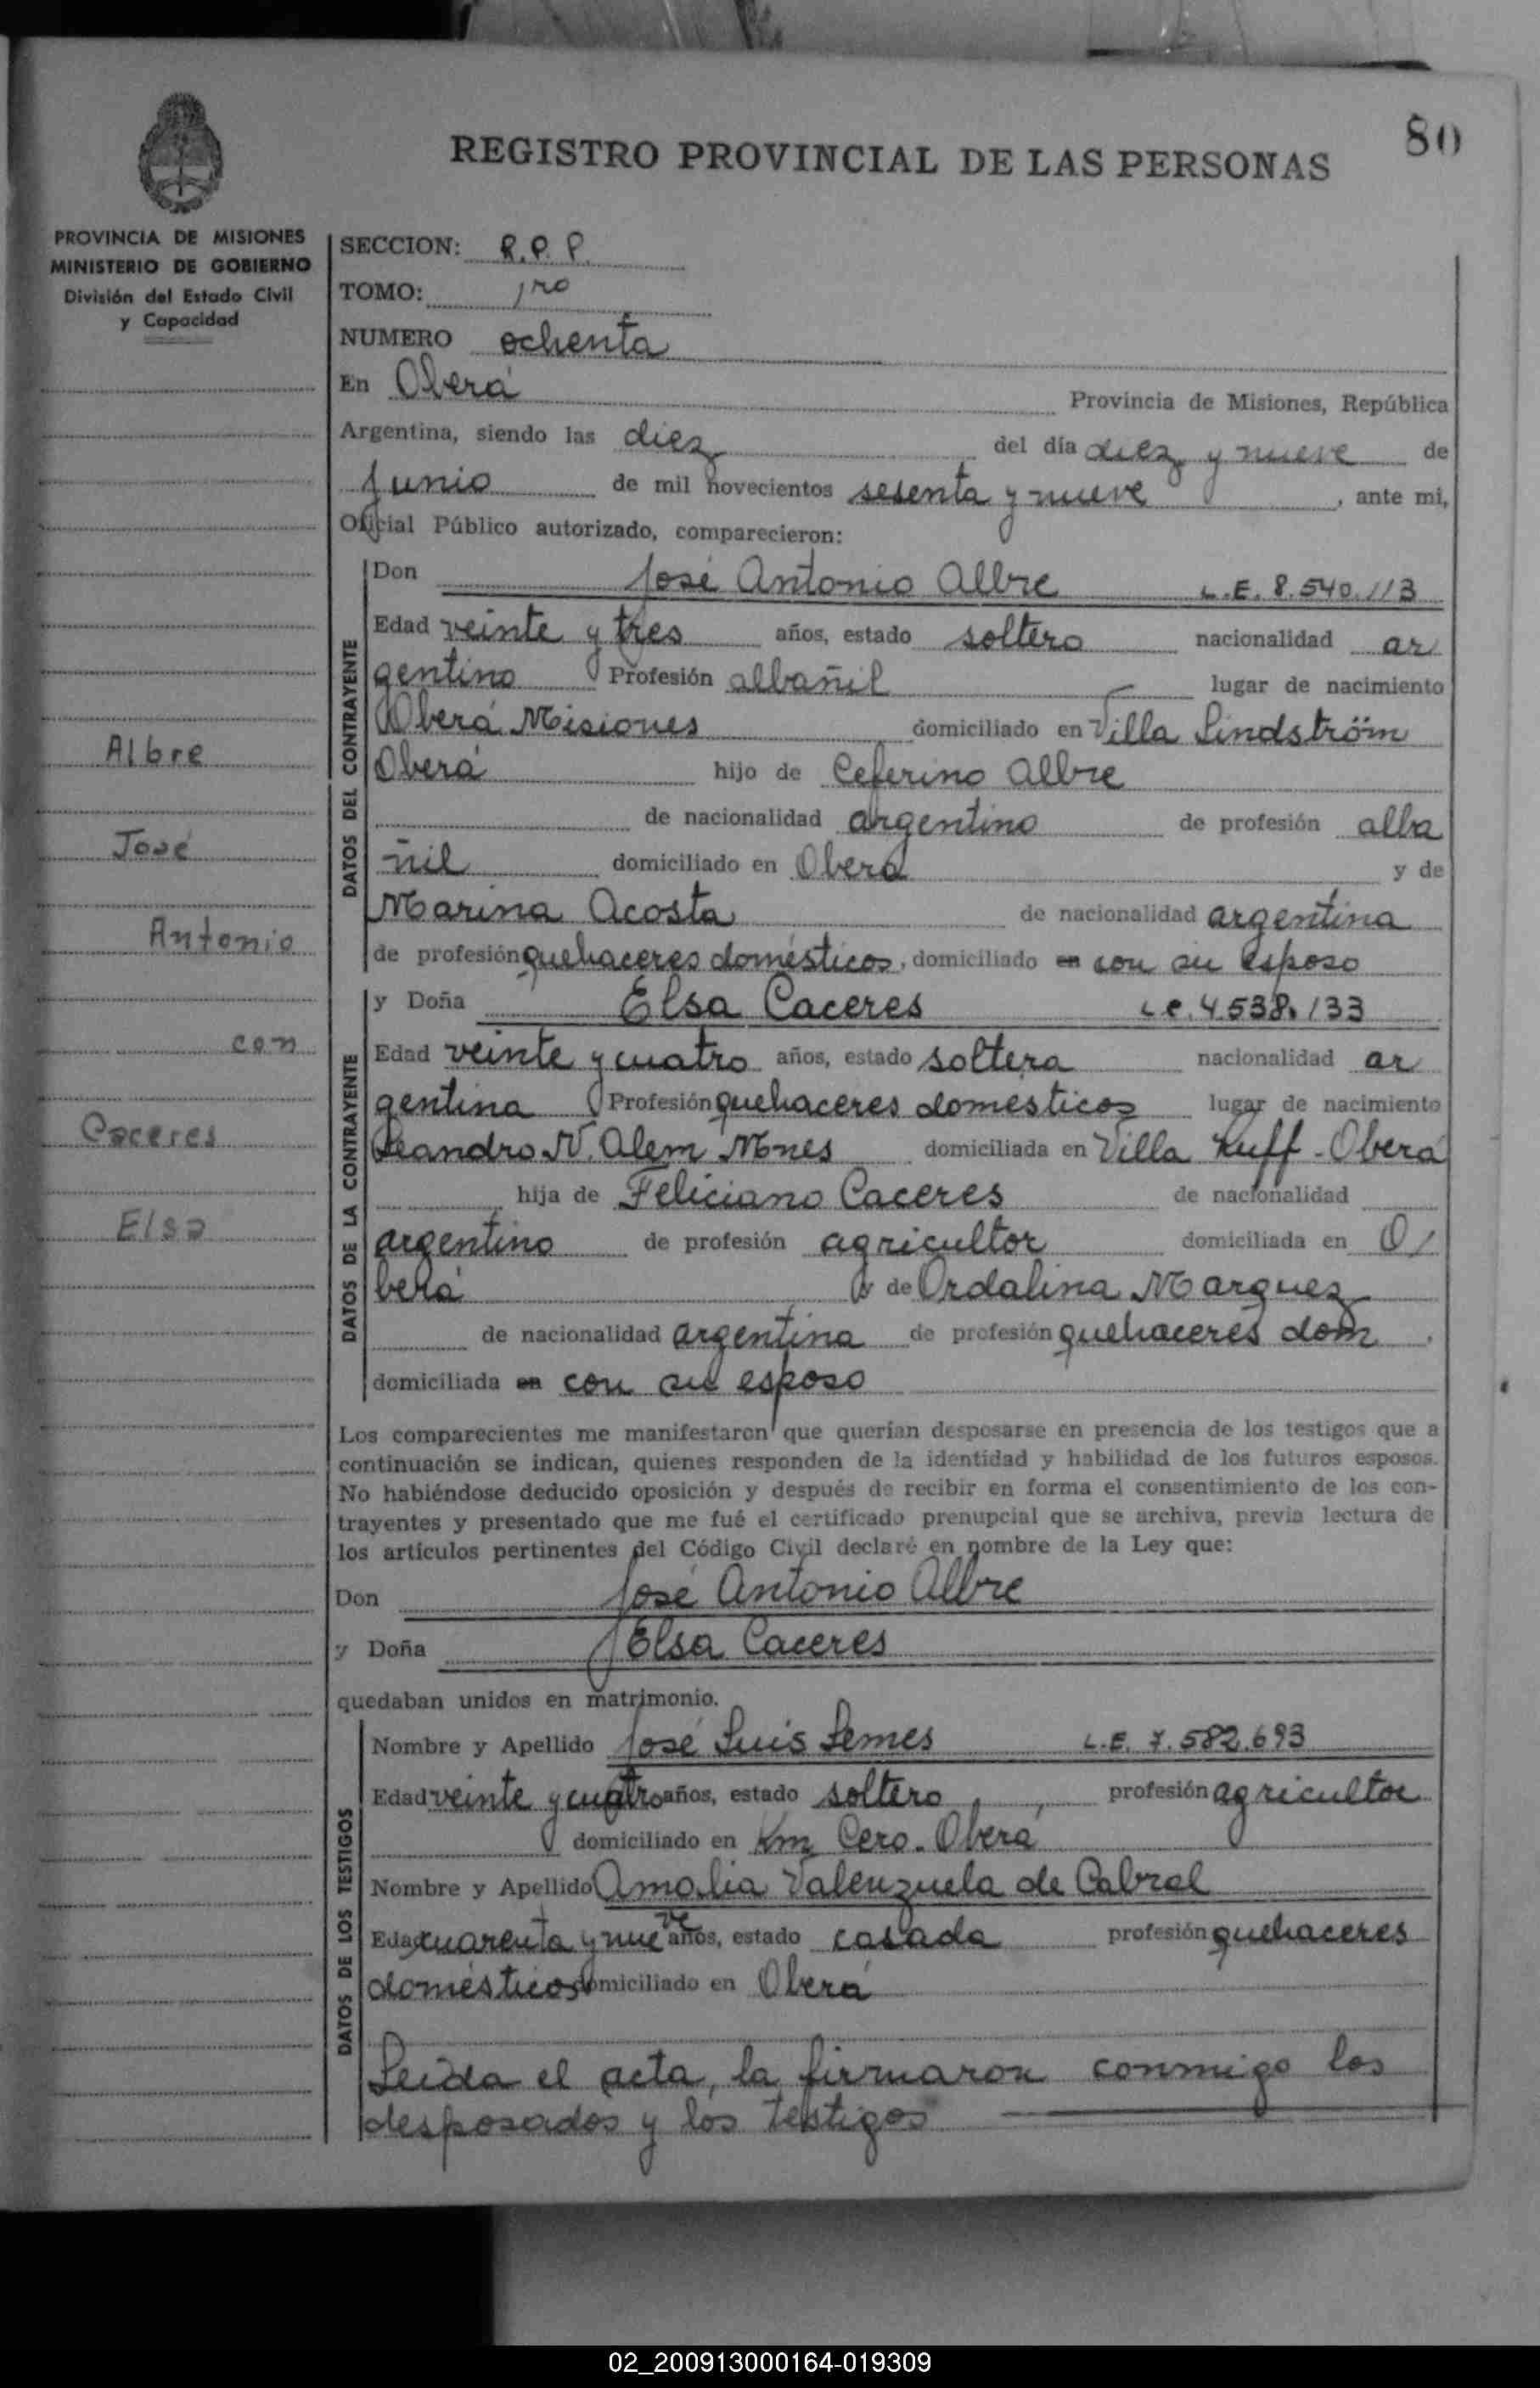 80
REGISTRO PROVINCIAL DE LAS PERSONAS
PROVINCIA DE MISIONES
MINISTERIO DE GOBIERNO
División del Estado Civil
y Capacidad
SECCION: R.P.P.
TOMO: 1ro
NUMERO ochenta
En Oberá Provincia de Misiones, República
Argentina, siendo las diez del día diez y nueve de
Junio de mil novecientos sesenta y nueve, ante mi,
Oficial Público autorizado, comparecieron:
DATOS DEL CONTRAYENTE
Don José Antonio Albre L.E. 8.540.113
Edad veinte y tres años, estado soltero nacionalidad ar
gentino Profesión albañil lugar de nacimiento
Oberá Misiones domiciliado en Villa Lindström
Oberá hijo de Ceferino Albre
de nacionalidad argentino de profesión alba
ñil domiciliado en Oberá y de
Marina Acosta de nacionalidad argentina
de profesión quehaceres domésticos, domiciliado en con su esposo
Albre
José
Antonio
con
Caceres
Elsa
DATOS DE LA CONTRAYENTE
y Doña Elsa Caceres L.C. 4.538.133
Edad veinte y cuatro años, estado soltera nacionalidad ar
gentina Profesión quehaceres domesticos lugar de nacimiento
Leandro N. Alem Mnes domiciliada en Villa Kuff - Oberá
hija de Feliciano Caceres de nacionalidad
argentino de profesión agricultor domiciliada en O/
berá y de Ordalina Marquez
de nacionalidad argentina de profesión quehaceres dom.
domiciliada en con su esposo
Los comparecientes me manifestaron que querían desposarse en presencia de los testigos que a
continuación se indican, quienes responden de la identidad y habilidad de los futuros esposos.
No habiéndose deducido oposición y después de recibir en forma el consentimiento de los con-
trayentes y presentado que me fué el certificado prenupcial que se archiva, previa lectura de
los artículos pertinentes del Código Civil declaré en nombre de la Ley que:
Don José Antonio Albre
y Doña Elsa Caceres
quedaban unidos en matrimonio.
DATOS DE LOS TESTIGOS
Nombre y Apellido José Luis Lemes L.E. 7.582.693
Edad veinte y cuatro años, estado soltero, profesión agricultor
domiciliado en Km Cero - Oberá
Nombre y Apellido Amalia Valenzuela de Cabral
Edad cuarenta y nueve años, estado casada profesión quehaceres
domésticos domiciliado en Oberá
Leída el acta, la firmaron conmigo los
desposados y los testigos
02_200913000164-019309